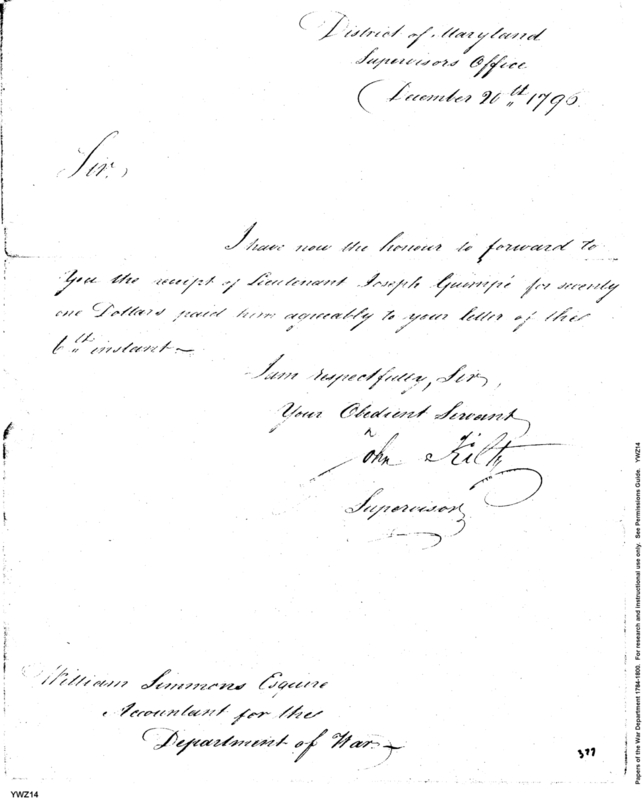 District of Maryland
Supervisors Office
December 20th 1796.
Sir,
I have now the honour to forward to
You the receipt of Lieutenant Joseph Gumpé for seventy
one Dollars paid him agreeably to your letter of the
6th instant
I am respectfully, Sir,
Your Obedient Servant
John Kilty
Supervisor
William Simmons Esquire
Accountant for the
Department of War
377
YWZ14
Papers of the War Department 1784-1800. For research and instructional use only. See Permissions Guide. YWZ14